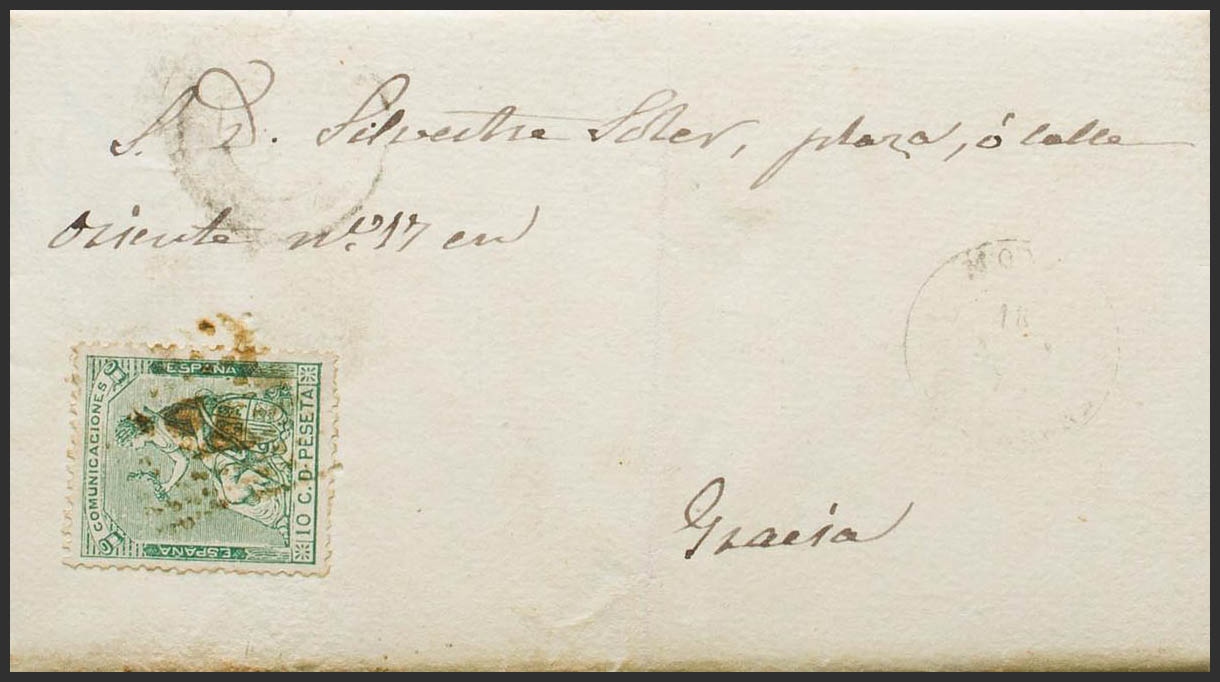 S. D. Silvestre Soler, plaza, ó calle
Oriente n.º 17 en
Gracia
COMUNICACIONES
ESPAÑA
ESPAÑA
10 C. D PESETA
18